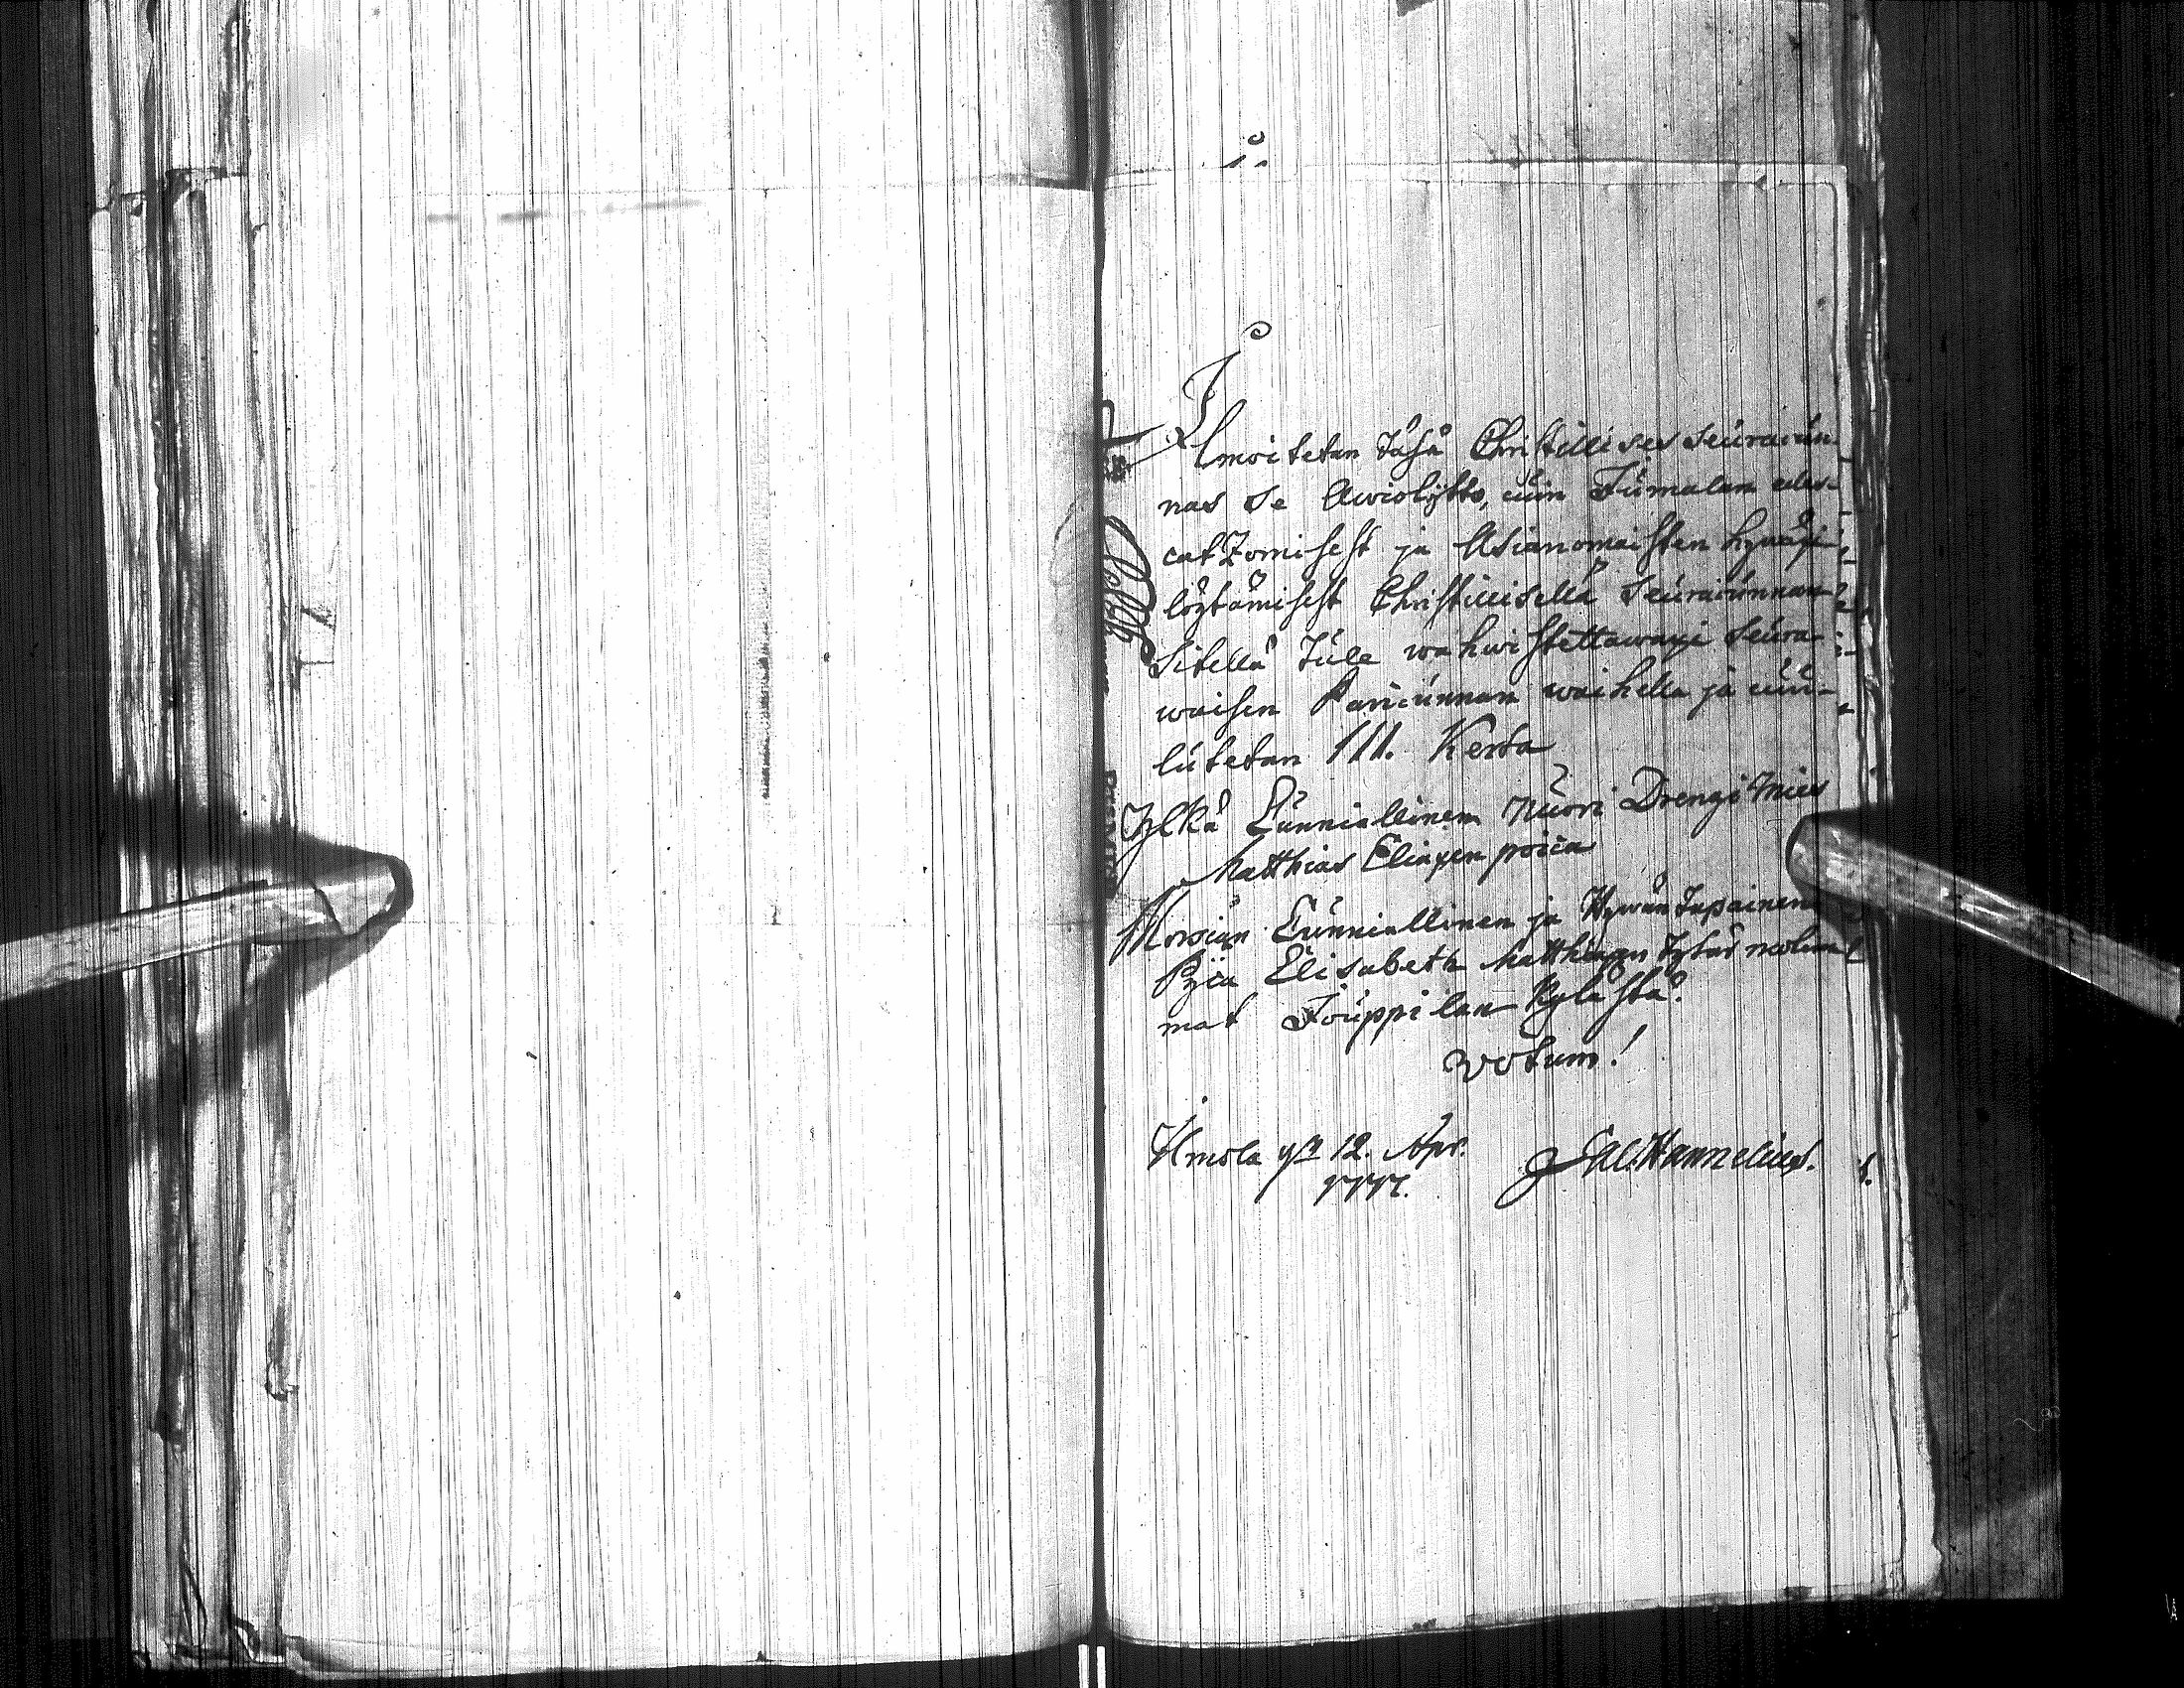 Ilmoitetan täsä Christillises Seuracun
nas se Awioliitto, cuin Jumalan edes-
catzomisest ja Asianomaisten hywäxi
löytämisest Christillisellä Seuracunnan
Sitellä tule wahwistettawaxi Seura
waisen Pariscunnan waihella ja cuu-
lutetan III. Kerta
Yljkä Cunniallinen Nuori Drengi Mies
Matthias Eliaxen poica
Morsian Cunniallinen ja Hywän tapainen
Pijca Elisabeth Matthiaxen tytär molem
mat Jouppilan Kylästä.
votum!
Ilmola 12. Apr.
1777.